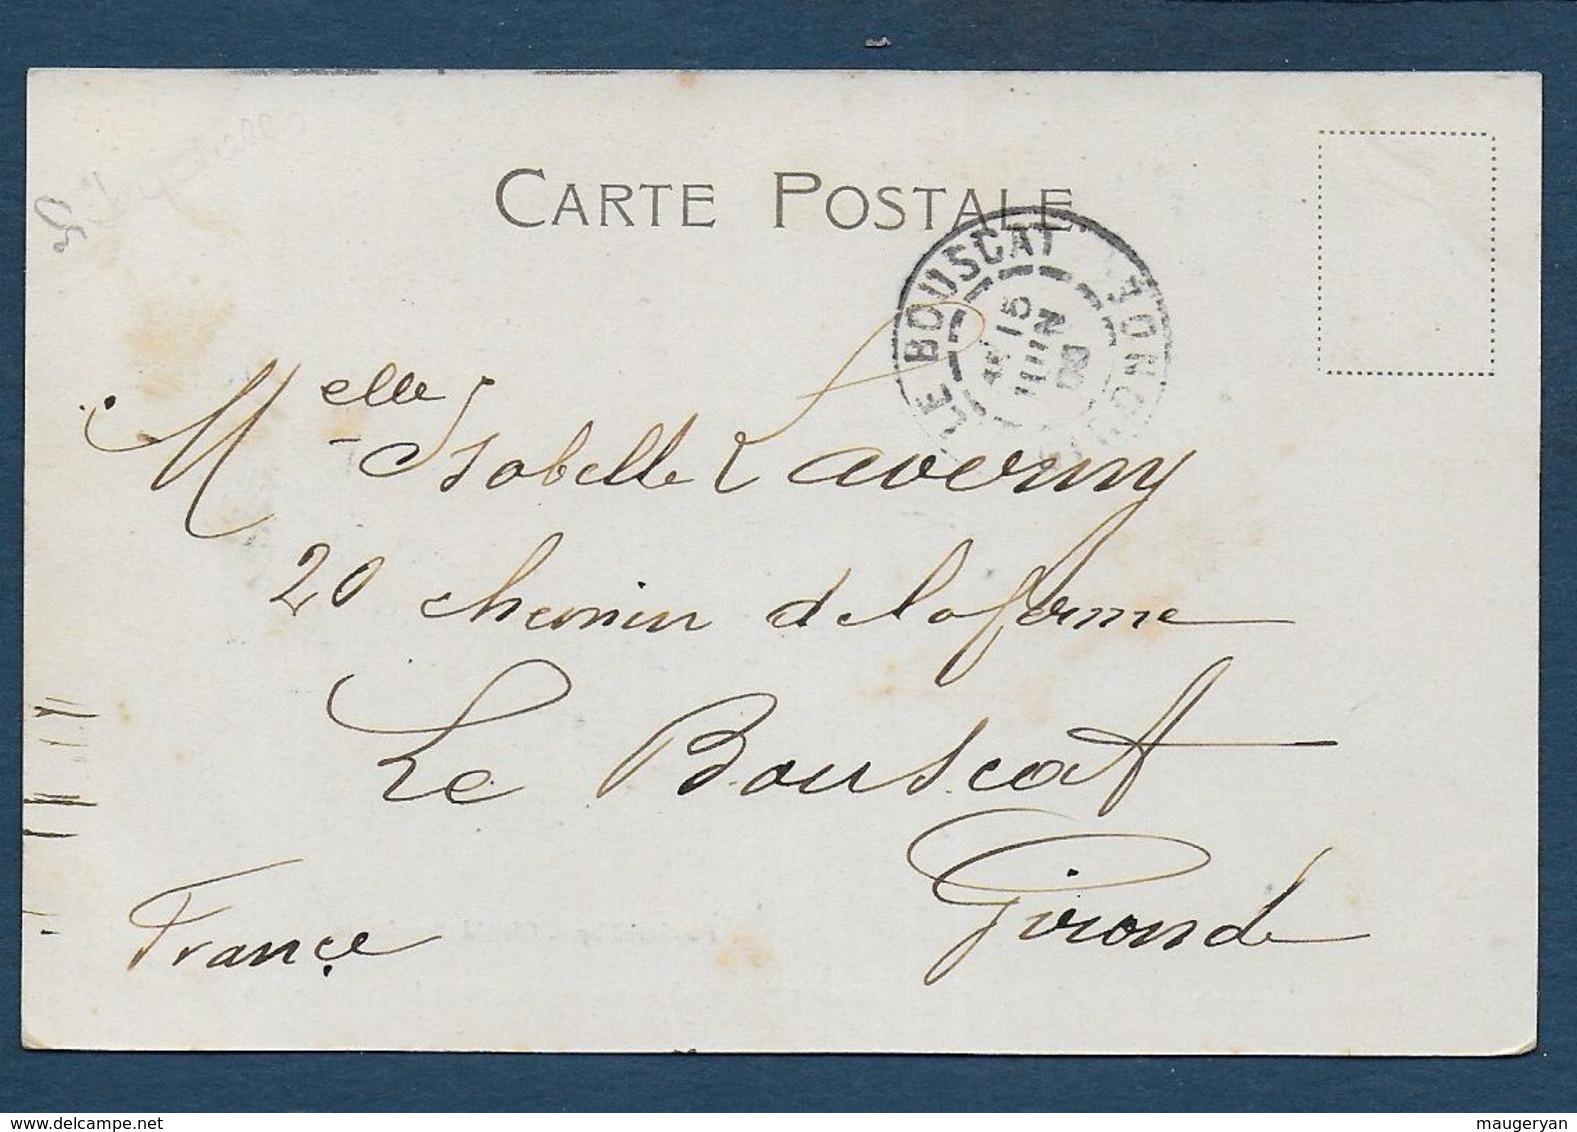 Seychelles
CARTE POSTALE
LE BOUSCAT
GIRONDE
15
JUIN
Melle Isabelle Laverny
20 chemin de la ferme
Le Bouscat
Gironde
France
maugeryan